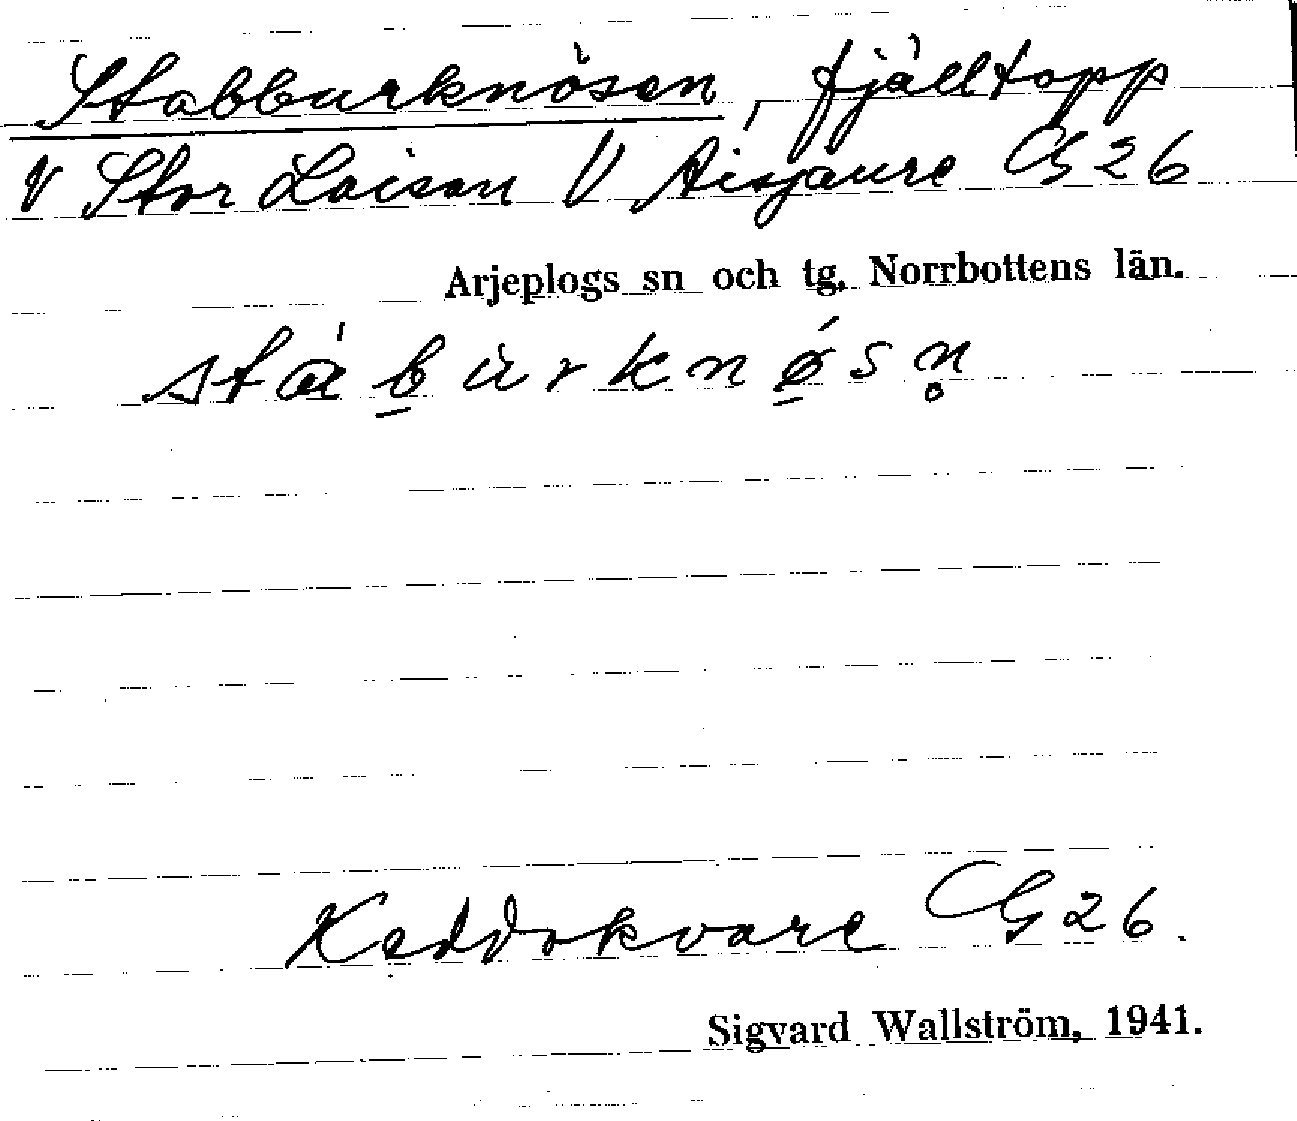 Stabburknösen, fjälltopp
V Stor Laisan V Aisjaure G 26
Arjeplogs sn och tg, Norrbottens län.
stáb̠ùrknǿ̠sn̥
Keddokvare G 26.
Sigvard Wallström, 1941.